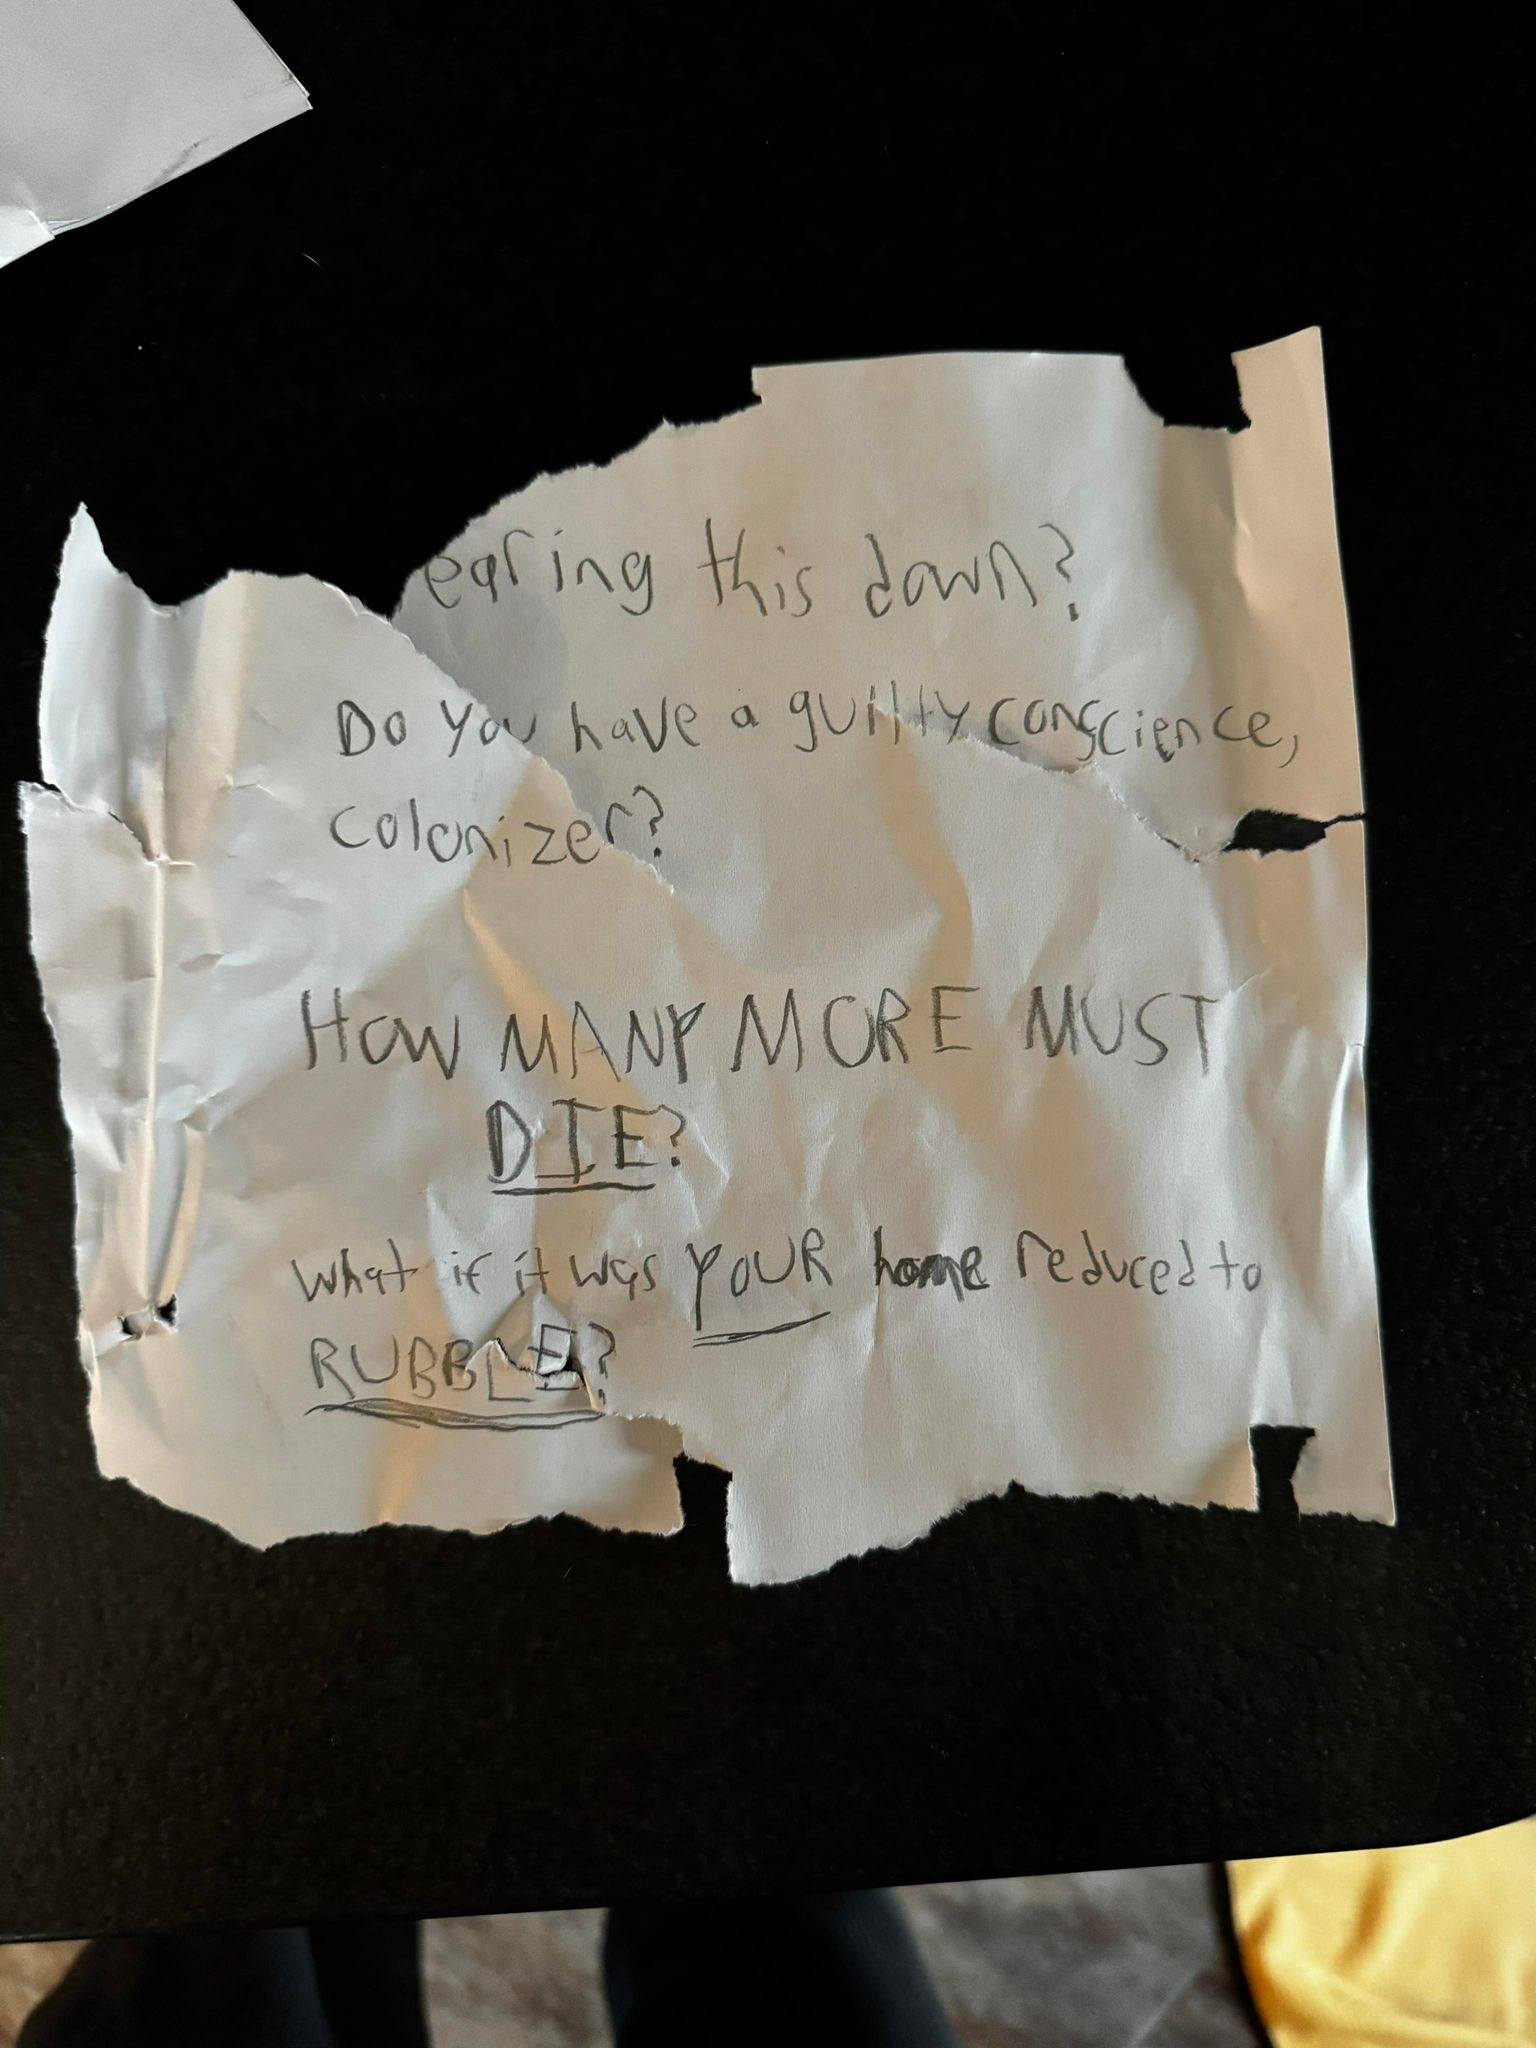 earing this down?
Do you have a guilty conscience,
colonizer?
HOW MANY MORE MUST
DIE?
What if it was YOUR home reduced to
RUBBLE?